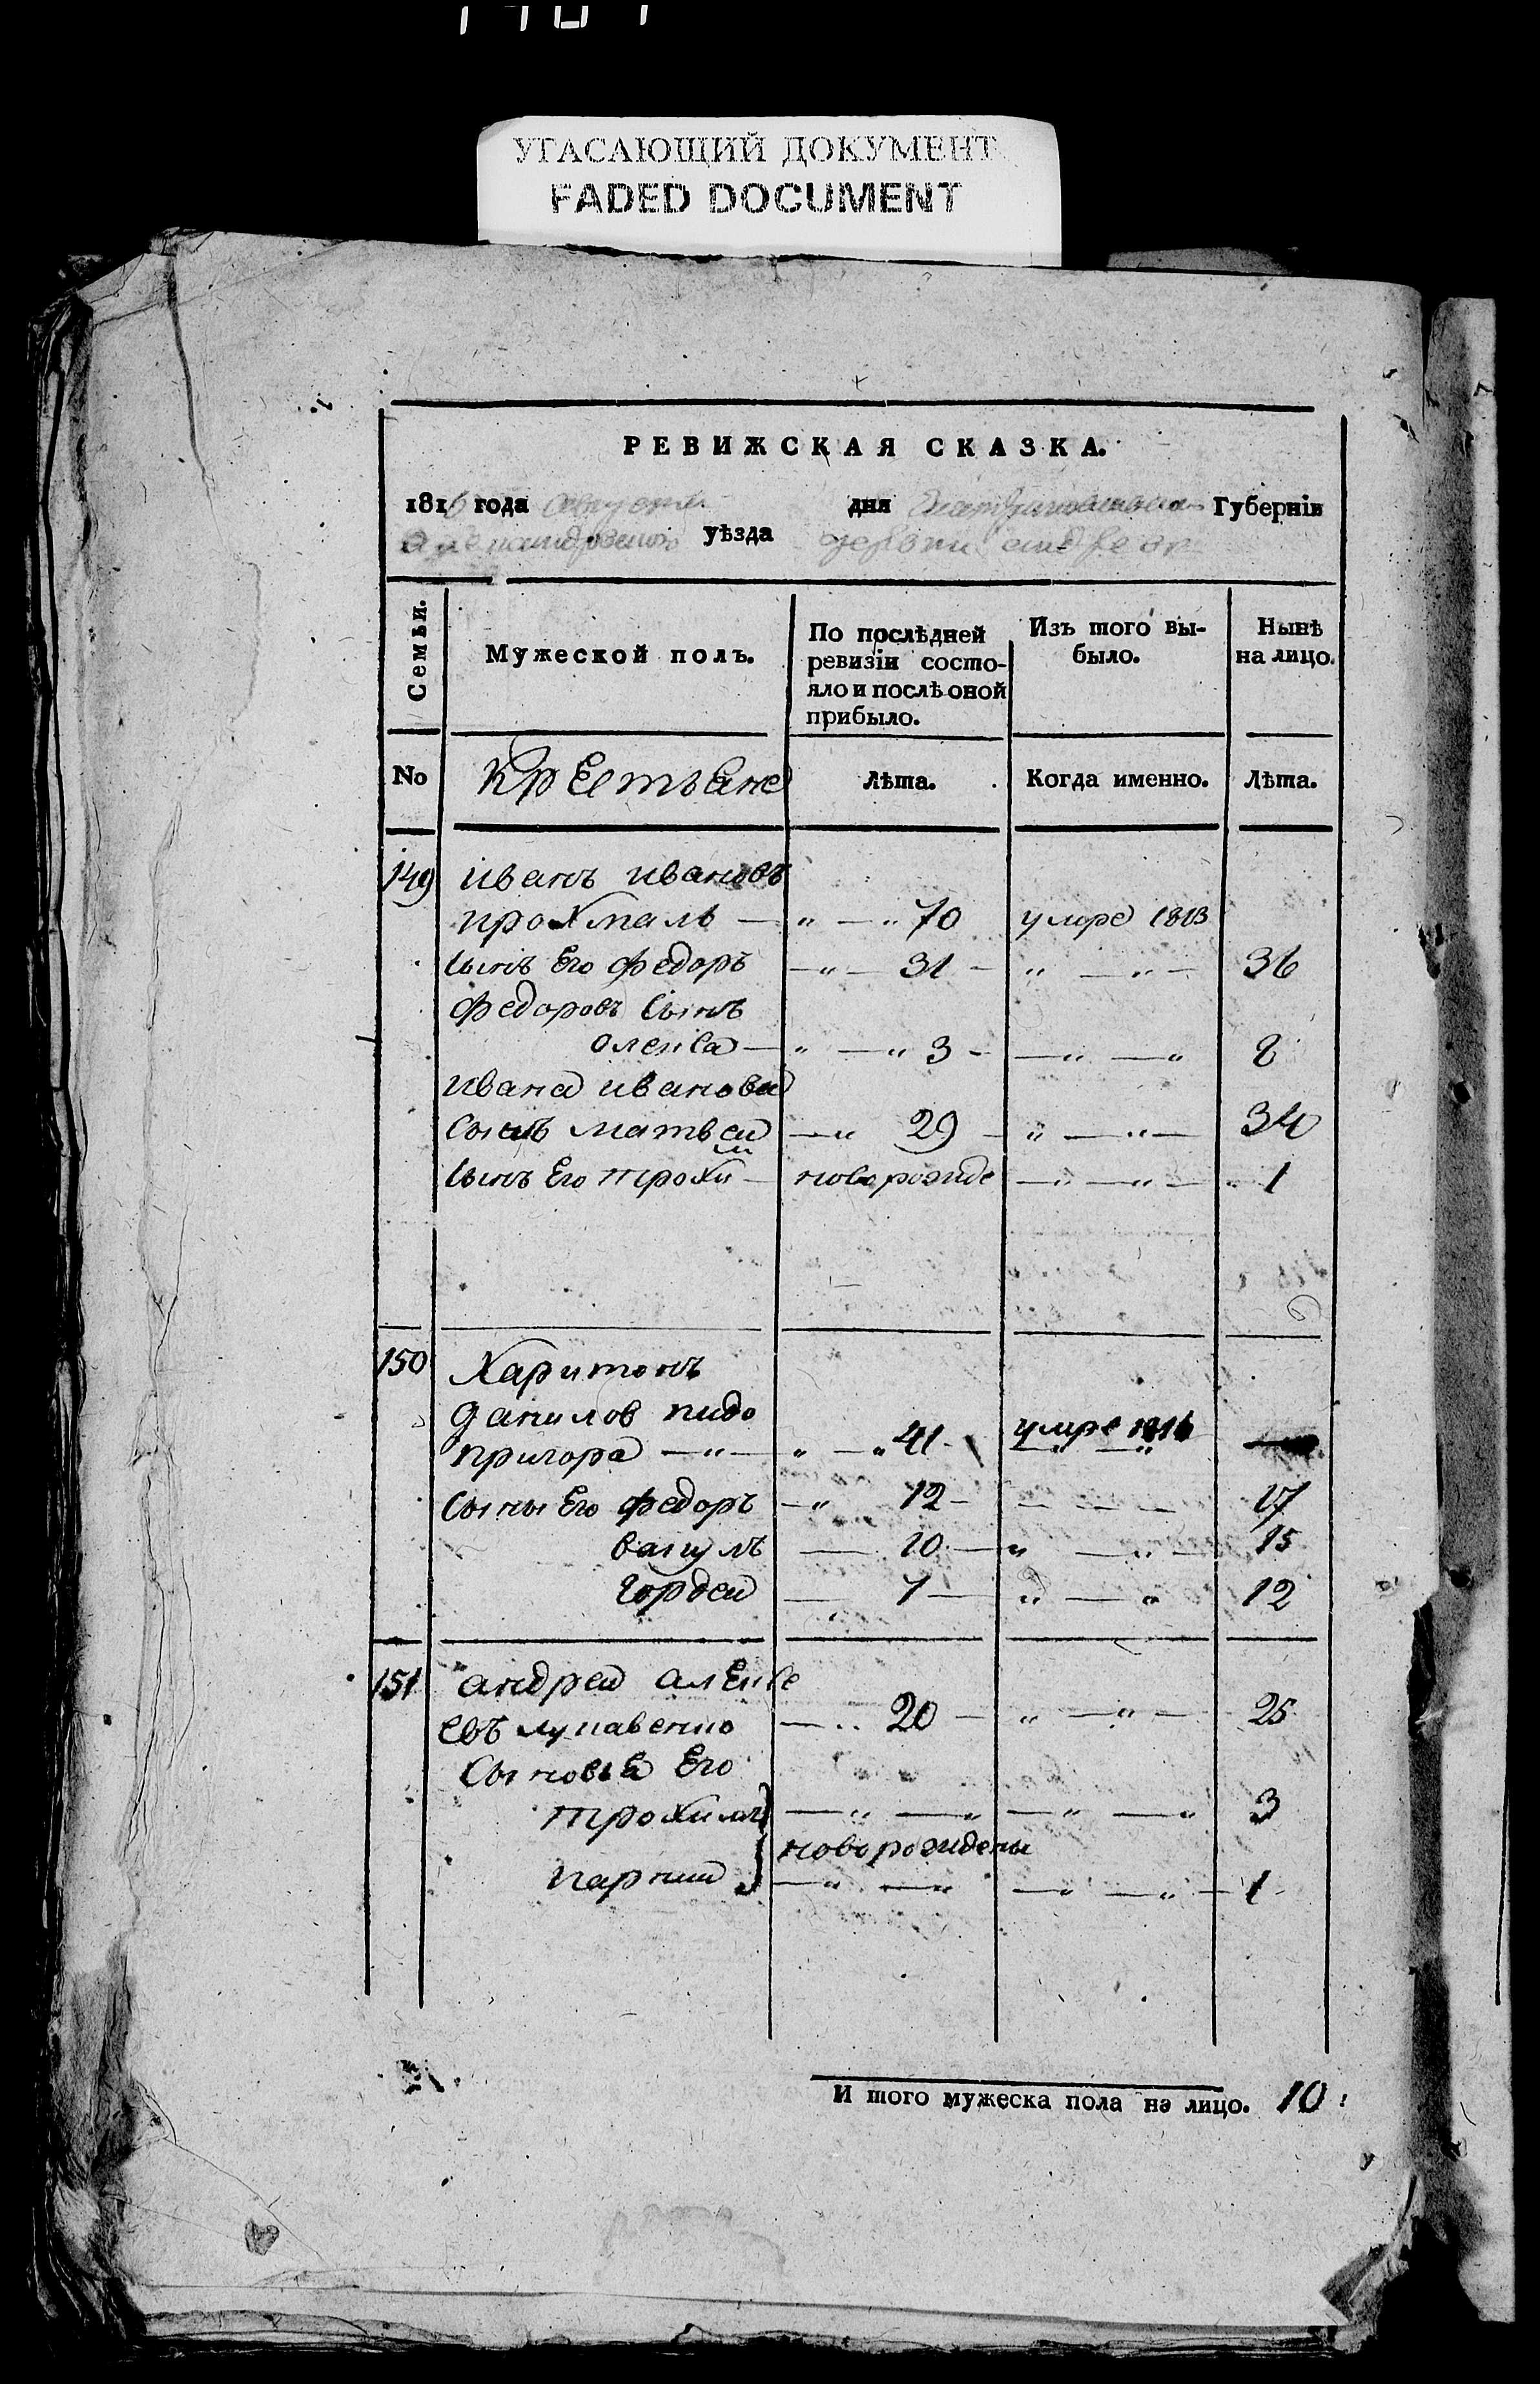 УГАСАЮЩИЙ ДОКУМЕНТ
FADED DOCUMENT
РЕВИЖСКАЯ СКАЗКА.
1816 года августа дня Екатеринославской Губерніи
Александровского уѣзда
Семьи.
Мужеской полъ.
По послѣдней
ревизіи состо-
яло и послѣ оной
прибыло.
Изъ того вы-
было.
Нынѣ
на лицо.
No Крестьяне Лѣта. Когда именно. Лѣта.
149 иванъ ивановъ
70 умре 1813
сынъ Его федоръ 31 36
федоровъ Сынъ
олекса 3 8
ивана иванова
Сынъ матвеи 29 34
сынъ Его трохим новорожде 1
150 Харитонъ
данилов пидо
пригора 41 умре 1816
Сыны Его федоръ 12 17
вакулъ 10 15
Гордеи 7 12
151 андреи алексе
евъ лукавенко 20 25
Сыновья Его
трохимъ 3
новорождены
карнии 1
И того мужеска пола на лицо. 10